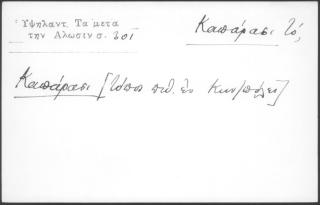 Ὑψηλαντ. Τα μετα
την Ἀλωσιν σ. 201
Καπάρασι τό,
Καπάρασι [τόπος πιθ. ἐν Κων/πόλει]